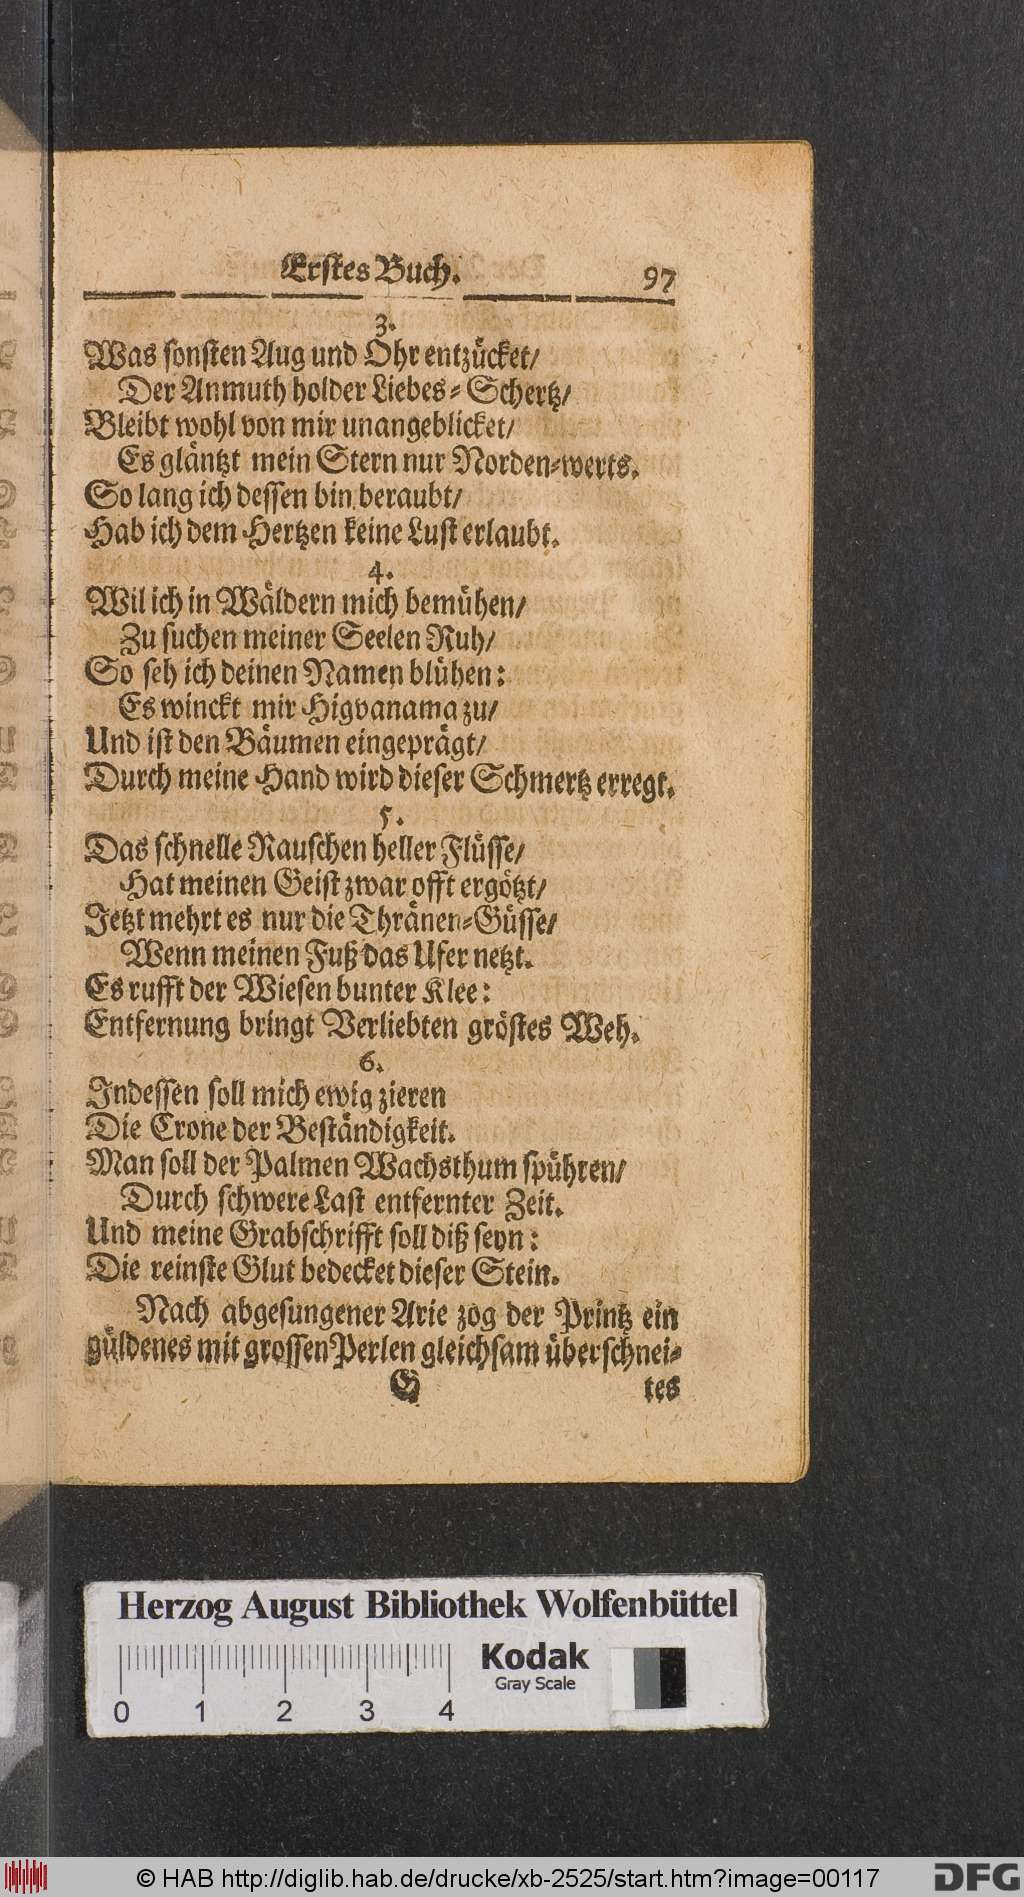 Erstes Buch. 97
3.
Was sonsten Aug und Ohr entzücket/
Der Anmuth holder Liebes-Schertz/
Bleibt wohl von mir unangeblicket/
Es gläntzt mein Stern nur Norden-werts.
So lang ich dessen bin beraubt/
Hab ich dem Hertzen keine Lust erlaubt.
4.
Wil ich in Wäldern mich bemühen/
Zu suchen meiner Seelen Ruh/
So seh ich deinen Namen blühen:
Es winckt mir Higvanama zu/
Und ist den Bäumen eingeprägt/
Durch meine Hand wird dieser Schmertz erregt.
5.
Das schnelle Rauschen heller Flüsse/
Hat meinen Geist zwar offt ergötzt/
Jetzt mehrt es nur die Thränen-Güsse/
Wenn meinen Fuß das Ufer netzt.
Es rufft der Wiesen bunter Klee:
Entfernung bringt Verliebten gröstes Weh.
6.
Indessen soll mich ewig zieren
Die Crone der Beständigkeit.
Man soll der Palmen Wachsthum spühren/
Durch schwere Last entfernter Zeit.
Und meine Grabschrifft soll diß seyn:
Die reinste Glut bedecket dieser Stein.
Nach abgesungener Arie zog der Printz ein
güldenes mit grossen Perlen gleichsam überschnei-
G tes
Herzog August Bibliothek Wolfenbüttel
Kodak
Gray Scale
0 1 2 3 4
© HAB http://diglib.hab.de/drucke/xb-2525/start.htm?image=00117
DFG